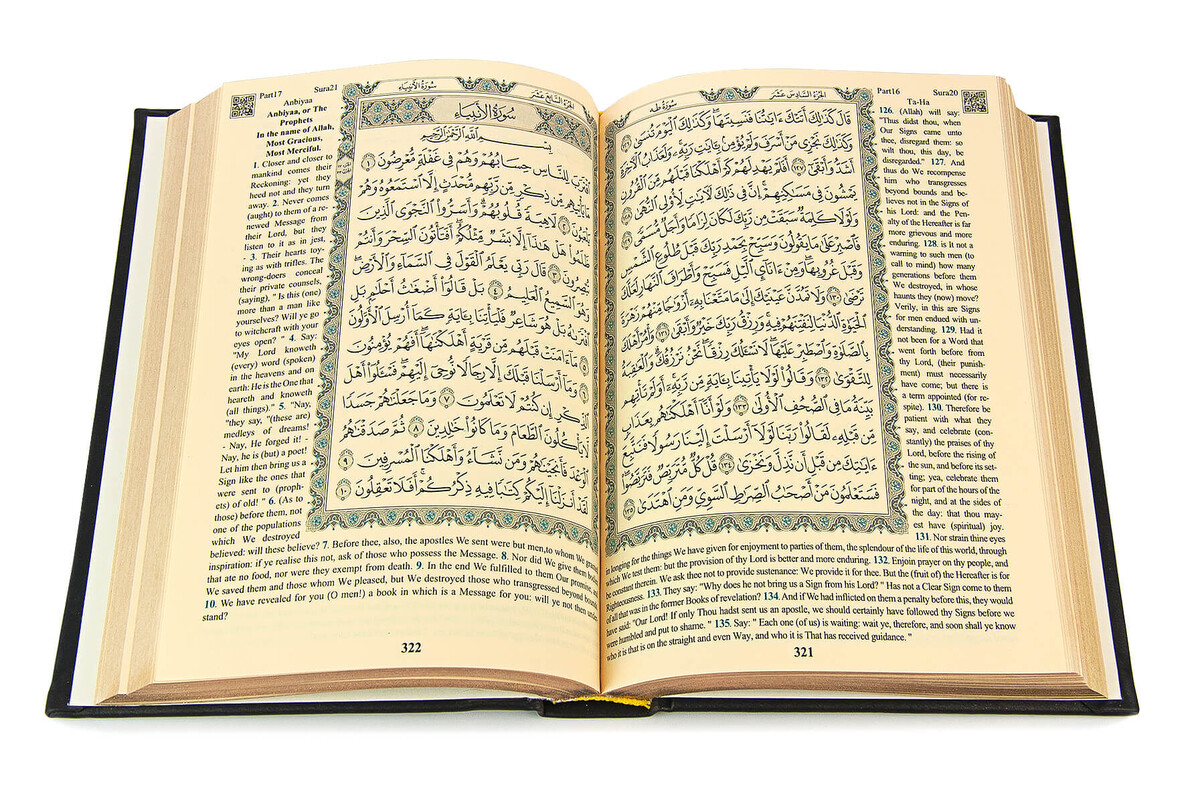 Part16 Sura20
سُورَةُ طه
الجُزءُ السَّادِسَ عَشَرَ
قَالَ كَذَٰلِكَ أَتَتْكَ ءَايَٰتُنَا فَنَسِيتَهَا ۖ وَكَذَٰلِكَ ٱلْيَوْمَ تُنسَىٰ ١٢٦
وَكَذَٰلِكَ نَجْزِى مَنْ أَسْرَفَ وَلَمْ يُؤْمِنۢ بِـَٔايَٰتِ رَبِّهِۦ ۚ وَلَعَذَابُ ٱلْءَاخِرَةِ
أَشَدُّ وَأَبْقَىٰٓ ١٢٧ أَفَلَمْ يَهْدِ لَهُمْ كَمْ أَهْلَكْنَا قَبْلَهُم مِّنَ ٱلْقُرُونِ
يَمْشُونَ فِى مَسَٰكِنِهِمْ ۗ إِنَّ فِى ذَٰلِكَ لَءَايَٰتٍ لِّأُو۟لِى ٱلنُّهَىٰ ١٢٨
وَلَوْلَا كَلِمَةٌ سَبَقَتْ مِن رَّبِّكَ لَكَانَ لِزَامًا وَأَجَلٌ مُّسَمًّى ١٢٩
فَٱصْبِرْ عَلَىٰ مَا يَقُولُونَ وَسَبِّحْ بِحَمْدِ رَبِّكَ قَبْلَ طُلُوعِ ٱلشَّمْسِ
وَقَبْلَ غُرُوبِهَا ۖ وَمِنْ ءَانَآئِ ٱلَّيْلِ فَسَبِّحْ وَأَطْرَافَ ٱلنَّهَارِ لَعَلَّكَ
تَرْضَىٰ ١٣٠ وَلَا تَمُدَّنَّ عَيْنَيْكَ إِلَىٰ مَا مَتَّعْنَا بِهِۦٓ أَزْوَٰجًا مِّنْهُمْ زَهْرَةَ
ٱلْحَيَوٰةِ ٱلدُّنْيَا لِنَفْتِنَهُمْ فِيهِ ۚ وَرِزْقُ رَبِّكَ خَيْرٌ وَأَبْقَىٰ ١٣١ وَأْمُرْ أَهْلَكَ
بِٱلصَّلَوٰةِ وَٱصْطَبِرْ عَلَيْهَا ۖ لَا نَسْـَٔلُكَ رِزْقًا ۖ نَّحْنُ نَرْزُقُكَ ۗ وَٱلْعَٰقِبَةُ
لِلتَّقْوَىٰ ١٣٢ وَقَالُوا۟ لَوْلَا يَأْتِينَا بِـَٔايَةٍ مِّن رَّبِّهِۦٓ ۚ أَوَلَمْ تَأْتِهِم
بَيِّنَةُ مَا فِى ٱلصُّحُفِ ٱلْأُولَىٰ ١٣٣ وَلَوْ أَنَّآ أَهْلَكْنَٰهُم بِعَذَابٍ
مِّن قَبْلِهِۦ لَقَالُوا۟ رَبَّنَا لَوْلَآ أَرْسَلْتَ إِلَيْنَا رَسُولًا فَنَتَّبِعَ
ءَايَٰتِكَ مِن قَبْلِ أَن نَّذِلَّ وَنَخْزَىٰ ١٣٤ قُلْ كُلٌّ مُّتَرَبِّصٌ فَتَرَبَّصُوا۟ ۖ
فَسَتَعْلَمُونَ مَنْ أَصْحَٰبُ ٱلصِّرَٰطِ ٱلسَّوِىِّ وَمَنِ ٱهْتَدَىٰ ١٣٥
Ta-Ha
126. (Allah) will say:
"Thus didst thou, when
Our Signs came unto
thee, disregard them: so
wilt thou, this day, be
disregarded." 127. And
thus do We recompense
him who transgresses
beyond bounds and be-
lieves not in the Signs of
his Lord: and the Pen-
alty of the Hereafter is far
more grievous and more
enduring. 128. is It not a
warning to such men (to
call to mind) how many
generations before them
We destroyed, in whose
haunts they (now) move?
Verily, in this are Signs
for men endued with un-
derstanding. 129. Had it
not been for a Word that
went forth before from
thy Lord, (their punish-
ment) must necessarily
have come; but there is
a term appointed (for re-
spite). 130. Therefore be
patient with what they
say, and celebrate (con-
stantly) the praises of thy
Lord, before the rising of
the sun, and before its set-
ting; yea, celebrate them
for part of the hours of the
night, and at the sides of
the day: that thou may-
est have (spiritual) joy.
131. Nor strain thine eyes
in longing for the things We have given for enjoyment to parties of them, the splendour of the life of this world, through
which We test them: but the provision of thy Lord is better and more enduring. 132. Enjoin prayer on thy people, and
be constant therein. We ask thee not to provide sustenance: We provide it for thee. But the (fruit of) the Hereafter is for
Righteousness. 133. They say: "Why does he not bring us a Sign from his Lord? " Has not a Clear Sign come to them
of all that was in the former Books of revelation? 134. And if We had inflicted on them a penalty before this, they would
have said: "Our Lord! If only Thou hadst sent us an apostle, we should certainly have followed thy Signs before we
were humbled and put to shame. " 135. Say: " Each one (of us) is waiting: wait ye, therefore, and soon shall ye know
who it is that is on the straight and even Way, and who it is That has received guidance. "
321
Part17 Sura21
الجُزءُ السَّابِعَ عَشَرَ
سُورَةُ الأَنبِيَاء
سُورَةُ الأَنبِيَاء
بِسْمِ ٱللَّهِ ٱلرَّحْمَٰنِ ٱلرَّحِيمِ
ٱقْتَرَبَ لِلنَّاسِ حِسَابُهُمْ وَهُمْ فِى غَفْلَةٍ مُّعْرِضُونَ ١
مَا يَأْتِيهِم مِّن ذِكْرٍ مِّن رَّبِّهِم مُّحْدَثٍ إِلَّا ٱسْتَمَعُوهُ وَهُمْ
يَلْعَبُونَ ٢ لَاهِيَةً قُلُوبُهُمْ ۗ وَأَسَرُّوا۟ ٱلنَّجْوَى ٱلَّذِينَ
ظَلَمُوا۟ هَلْ هَٰذَآ إِلَّا بَشَرٌ مِّثْلُكُمْ ۖ أَفَتَأْتُونَ ٱلسِّحْرَ وَأَنتُمْ
تُبْصِرُونَ ٣ قَالَ رَبِّى يَعْلَمُ ٱلْقَوْلَ فِى ٱلسَّمَآءِ وَٱلْأَرْضِ ۖ
وَهُوَ ٱلسَّمِيعُ ٱلْعَلِيمُ ٤ بَلْ قَالُوٓا۟ أَضْغَٰثُ أَحْلَٰمٍۭ بَلِ
ٱفْتَرَىٰهُ بَلْ هُوَ شَاعِرٌ فَلْيَأْتِنَا بِـَٔايَةٍ كَمَآ أُرْسِلَ ٱلْأَوَّلُونَ
٥ مَآ ءَامَنَتْ قَبْلَهُم مِّن قَرْيَةٍ أَهْلَكْنَٰهَآ ۖ أَفَهُمْ يُؤْمِنُونَ
٦ وَمَآ أَرْسَلْنَا قَبْلَكَ إِلَّا رِجَالًا نُّوحِىٓ إِلَيْهِمْ ۖ فَسْـَٔلُوٓا۟ أَهْلَ
ٱلذِّكْرِ إِن كُنتُمْ لَا تَعْلَمُونَ ٧ وَمَا جَعَلْنَٰهُمْ جَسَدًا
لَّا يَأْكُلُونَ ٱلطَّعَامَ وَمَا كَانُوا۟ خَٰلِدِينَ ٨ ثُمَّ صَدَقْنَٰهُمُ
ٱلْوَعْدَ فَأَنجَيْنَٰهُمْ وَمَن نَّشَآءُ وَأَهْلَكْنَا ٱلْمُسْرِفِينَ ٩
لَقَدْ أَنزَلْنَآ إِلَيْكُمْ كِتَٰبًا فِيهِ ذِكْرُكُمْ ۖ أَفَلَا تَعْقِلُونَ ١٠
Anbiyaa
Anbiyaa, or The
Prophets
In the name of Allah,
Most Gracious,
Most Merciful.
1. Closer and closer to
mankind comes their
Reckoning: yet they
heed not and they turn
away. 2. Never comes
(aught) to them of a re-
newed Message from
their Lord, but they
listen to it as in jest,
- 3. Their hearts toy-
ing as with trifles. The
wrong-doers conceal
their private counsels,
(saying), " Is this (one)
more than a man like
yourselves? Will ye go
to witchcraft with your
eyes open? " 4. Say:
"My Lord knoweth
(every) word (spoken)
in the heavens and on
earth: He is the One that
heareth and knoweth
(all things)." 5. "Nay,
"they say, "(these are)
medleys of dreams!
- Nay, He forged it! -
Nay, he is (but) a poet!
Let him then bring us a
Sign like the ones that
were sent to (proph-
ets) of old! " 6. (As to
those) before them, not
one of the populations
which We destroyed
believed: will these believe? 7. Before thee, also, the apostles We sent were but men,to whom We granted
inspiration: if ye realise this not, ask of those who possess the Message. 8. Nor did We give them bodies
that ate no food, nor were they exempt from death. 9. In the end We fulfilled to them Our promise,
We saved them and those whom We pleased, but We destroyed those who transgressed beyond bounds.
10. We have revealed for you (O men!) a book in which is a Message for you: will ye not then under-
stand?
322